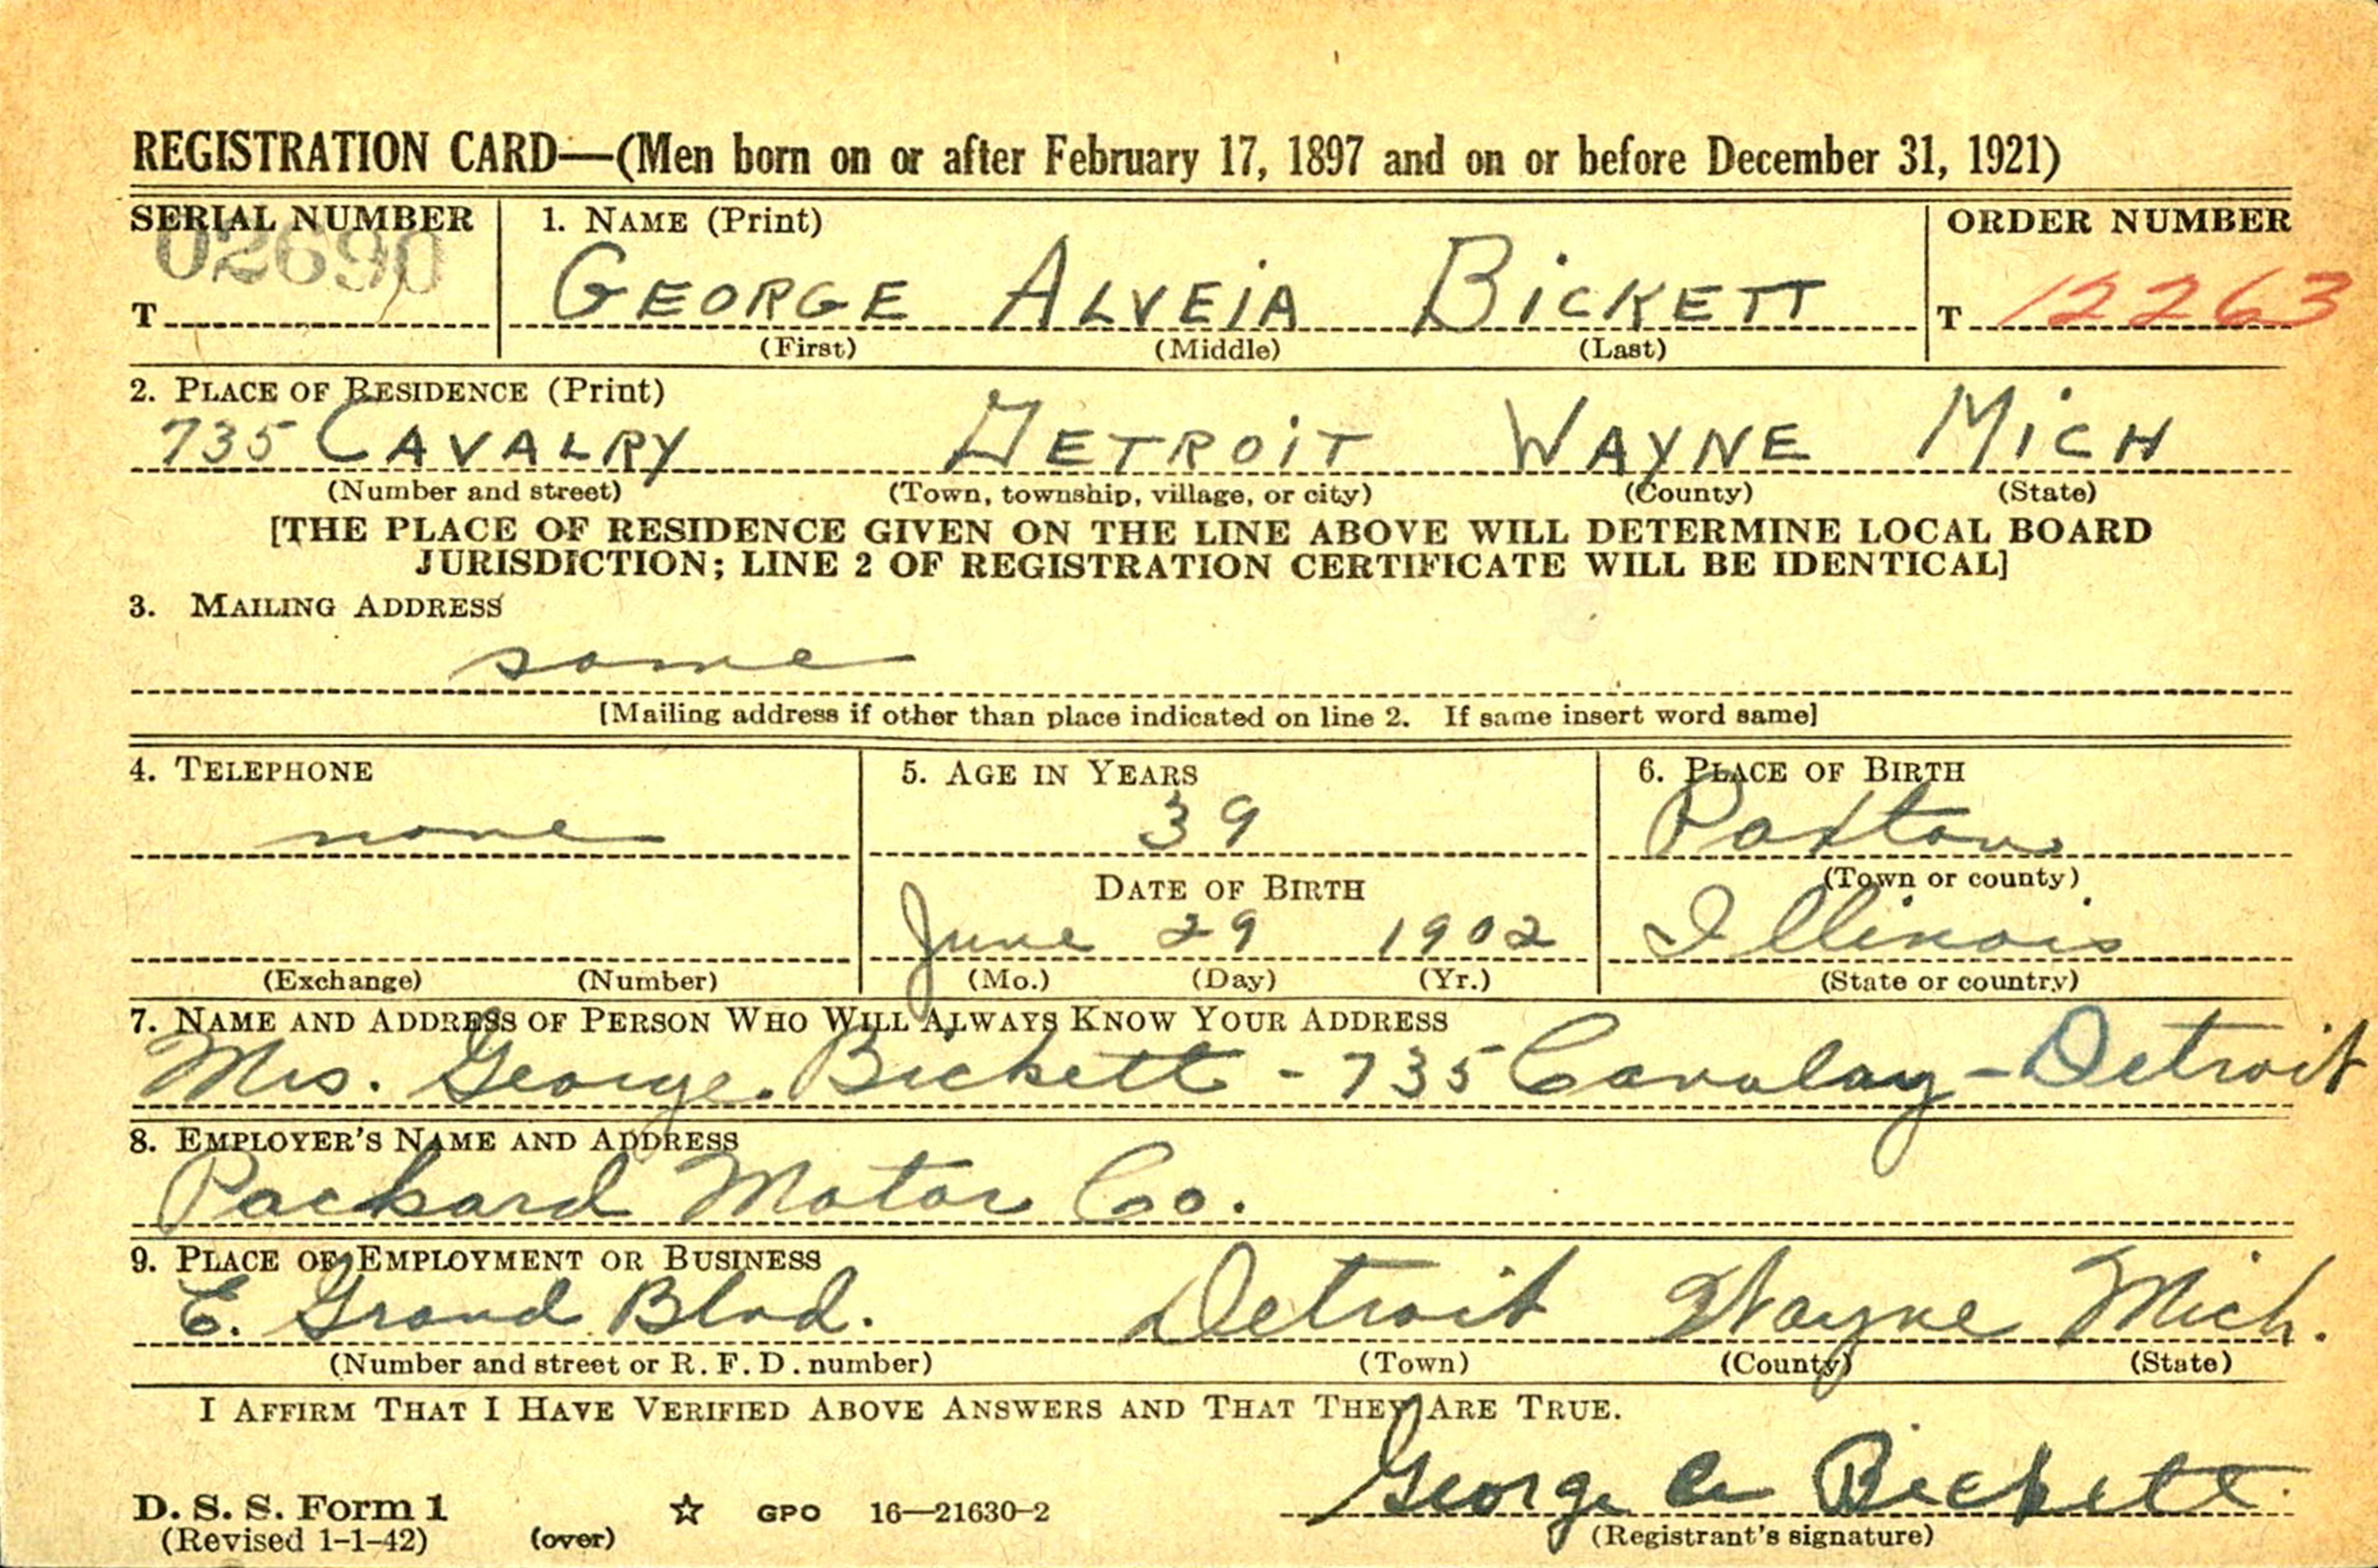 REGISTRATION CARD—(Men born on or after February 17, 1897 and on or before December 31, 1921)
SERIAL NUMBER 1. NAME (Print) ORDER NUMBER
02690
T GEORGE ALVEIA BICKETT T 12263
(First) (Middle) (Last)
2. PLACE OF RESIDENCE (Print)
735 CAVALRY DETROIT WAYNE MICH
(Number and street) (Town, township, village, or city) (County) (State)
[THE PLACE OF RESIDENCE GIVEN ON THE LINE ABOVE WILL DETERMINE LOCAL BOARD
JURISDICTION; LINE 2 OF REGISTRATION CERTIFICATE WILL BE IDENTICAL]
3. MAILING ADDRESS
same
[Mailing address if other than place indicated on line 2. If same insert word same]
4. TELEPHONE 5. AGE IN YEARS 6. PLACE OF BIRTH
none 39 Paxton
DATE OF BIRTH (Town or county)
June 29 1902 Illinois
(Exchange) (Number) (Mo.) (Day) (Yr.) (State or country)
7. NAME AND ADDRESS OF PERSON WHO WILL ALWAYS KNOW YOUR ADDRESS
Mrs. George Bickett - 735 Cavalry - Detroit
8. EMPLOYER'S NAME AND ADDRESS
Packard Motor Co.
9. PLACE OF EMPLOYMENT OR BUSINESS
E. Grand Blvd. Detroit Wayne Mich.
(Number and street or R. F. D. number) (Town) (County) (State)
I AFFIRM THAT I HAVE VERIFIED ABOVE ANSWERS AND THAT THEY ARE TRUE.
George A Bickett
D. S. S. Form 1 ☆ GPO 16—21630-2
(Revised 1-1-42) (over) (Registrant's signature)